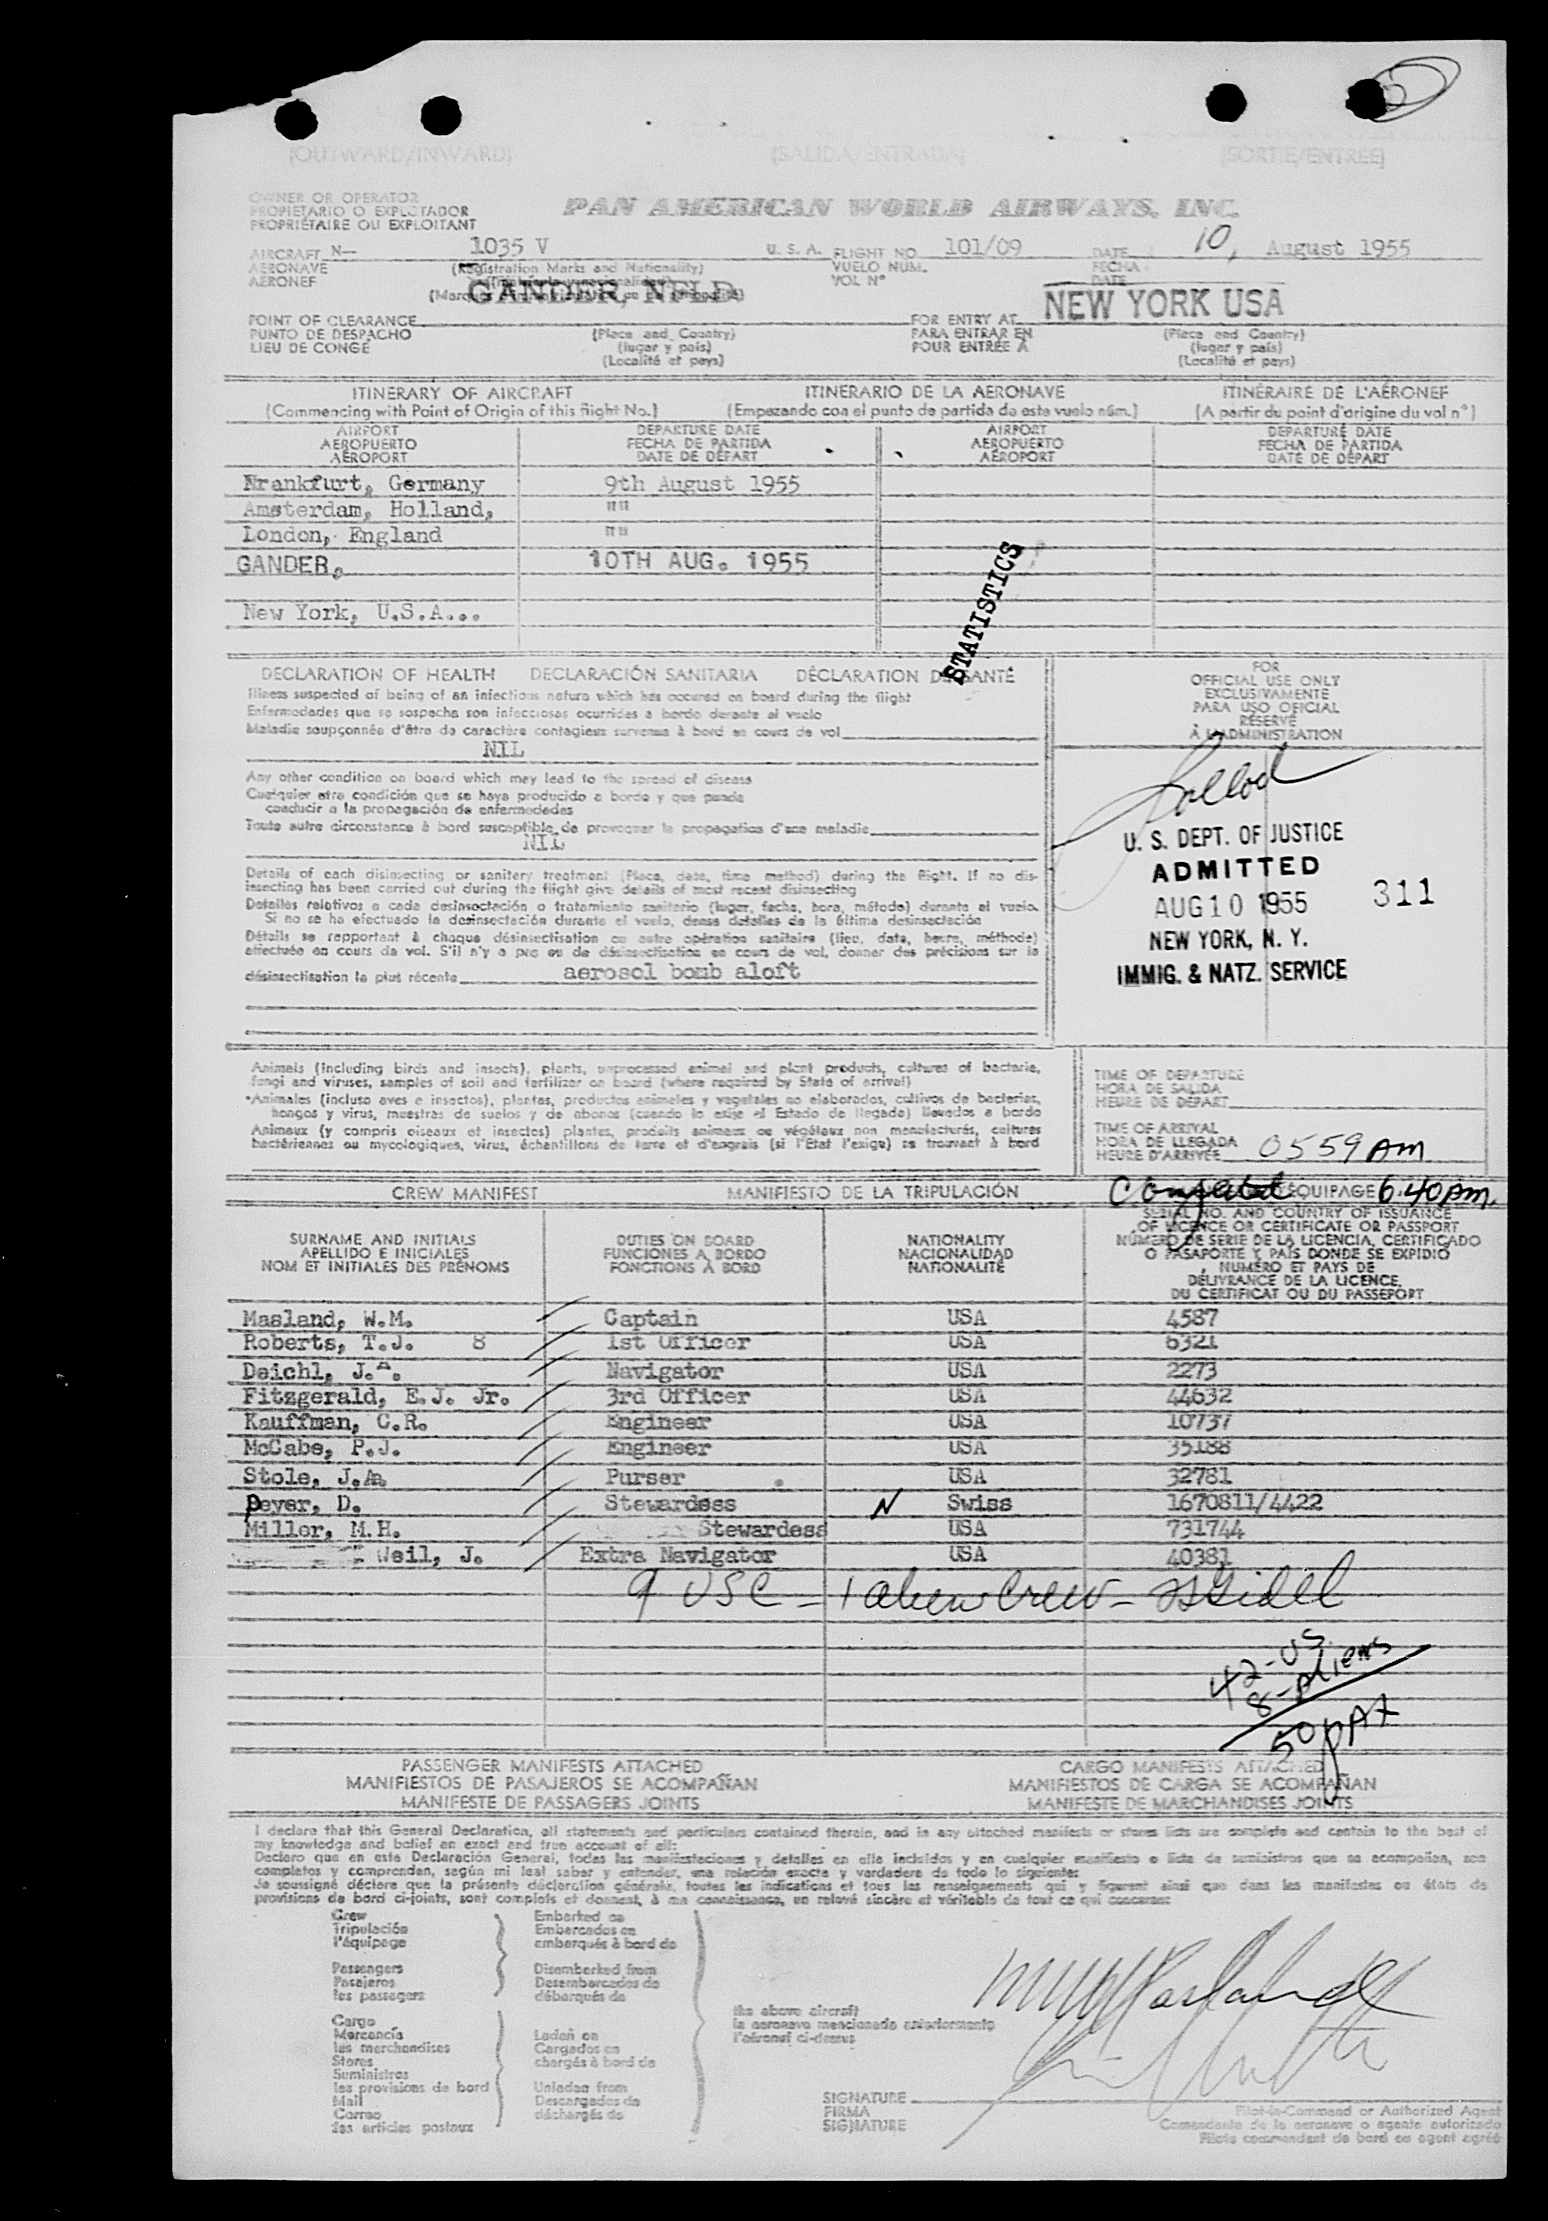 (OUTWARD/INWARD) (SALIDA/ENTRADA) (SORTIE/ENTREE)
OWNER OR OPERATOR
PROPIETARIO O EXPLOTADOR
PROPRIÉTAIRE OU EXPLOITANT
PAN AMERICAN WORLD AIRWAYS, INC.
AIRCRAFT N— 1035 V U. S. A. FLIGHT NO. 101/09 DATE 10, August 1955
AERONAVE (Registration Marks and Nationality) VUELO NUM. FECHA
AERONEF VOL N° DATE
GANDER, NFLD NEW YORK USA
POINT OF CLEARANCE FOR ENTRY AT
PUNTO DE DESPACHO (Place and Country) PARA ENTRAR EN (Place and Country)
LIEU DE CONGÉ (lugar y país) POUR ENTRÉE À (lugar y país)
(Localité et pays) (Localité et pays)
ITINERARY OF AIRCRAFT ITINERARIO DE LA AERONAVE ITINÉRAIRE DE L'AÉRONEF
(Commencing with Point of Origin of this flight No.) (Empezando con el punto de partida de este vuelo núm.) (A partir du point d'origine du vol n°)
AIRPORT DEPARTURE DATE AIRPORT DEPARTURE DATE
AEROPUERTO FECHA DE PARTIDA AEROPUERTO FECHA DE PARTIDA
AÉROPORT DATE DE DÉPART AÉROPORT DATE DE DÉPART
Frankfurt, Germany 9th August 1955
Amsterdam, Holland, "" 
London, England ""
GANDER, 10TH AUG. 1955
New York, U.S.A...
STATISTICS
DECLARATION OF HEALTH DECLARACIÓN SANITARIA DÉCLARATION DE SANTÉ
Illness suspected of being of an infectious nature which has occured on board during the flight
Enfermedades que se sospecha son infecciosas ocurridas a bordo durante el vuelo
Maladie soupçonnée d'être de caractère contagieux survenue à bord en cours de vol
NIL
Any other condition on board which may lead to the spread of disease
Cualquier otra condición que se haya producido a bordo y que pueda
conducir a la propagación de enfermedades
Toute autre circonstance à bord susceptible de provoquer la propagation d'une maladie
NIL
Details of each disinsecting or sanitary treatment (Place, date, time method) during the flight. If no dis-
insecting has been carried out during the flight give details of most recent disinsecting
Detalles relativos a cada desinsectación o tratamiento sanitario (lugar, fecha, hora, método) durante el vuelo.
Si no se ha efectuado la desinsectación durante el vuelo, dense detalles de la última desinsectación
Détails se rapportant à chaque désinsectisation ou autre opération sanitaire (lieu, date, heure, méthode)
effectuée en cours de vol. S'il n'y a pas eu de désinsectisation en cours de vol, donner des précisions sur la
désinsectisation la plus récente aerosol bomb aloft
FOR
OFFICIAL USE ONLY
EXCLUSIVAMENTE
PARA USO OFICIAL
RÉSERVÉ
À L'ADMINISTRATION
U. S. DEPT. OF JUSTICE
ADMITTED
AUG 10 1955 311
NEW YORK, N. Y.
IMMIG. & NATZ. SERVICE
Animals (including birds and insects), plants, unprocessed animal and plant products, cultures of bacteria,
fungi and viruses, samples of soil and fertilizer on board (where required by State of arrival)
*Animales (incluso aves e insectos), plantas, productos animales y vegetales no elaborados, cultivos de bacterias,
hongos y virus, muestras de suelos y de abonos (cuando lo exige el Estado de llegada) llevados a bordo
Animaux (y compris oiseaux et insectes) plantes, produits animaux ou végétaux non manufacturés, cultures
bactériennes ou mycologiques, virus, échantillons de terre et d'engrais (si l'État l'exige) se trouvant à bord
TIME OF DEPARTURE
HORA DE SALIDA
HEURE DE DÉPART
TIME OF ARRIVAL
HORA DE LLEGADA
HEURE D'ARRIVÉE 0559 AM
CREW MANIFEST MANIFIESTO DE LA TRIPULACIÓN Completed ÉQUIPAGE 6:40 am.
SERIAL NO. AND COUNTRY OF ISSUANCE
OF LICENCE OR CERTIFICATE OR PASSPORT
SURNAME AND INITIALS DUTIES ON BOARD NATIONALITY NÚMERO DE SERIE DE LA LICENCIA, CERTIFICADO
APELLIDO E INICIALES FUNCIONES A BORDO NACIONALIDAD O PASAPORTE Y PAÍS DONDE SE EXPIDIÓ
NOM ET INITIALES DES PRÉNOMS FONCTIONS À BORD NATIONALITÉ NUMÉRO ET PAYS DE
DÉLIVRANCE DE LA LICENCE,
DU CERTIFICAT OU DU PASSEPORT
Masland, W.M. Captain USA 4587
Roberts, T.J. 8 1st Officer USA 6321
Deichl, J.A. Navigator USA 2273
Fitzgerald, E.J. Jr. 3rd Officer USA 44632
Kauffman, C.R. Engineer USA 10737
McCabe, P.J. Engineer USA 35188
Stole, J.A. Purser USA 32781
Beyer, D. Stewardess N Swiss 1670811/4422
Miller, M.H. Stewardess USA 731744
Weil, J. Extra Navigator USA 40381
9 USC - 1 alien crew -
42-US
8-Aliens
50 PAX
PASSENGER MANIFESTS ATTACHED CARGO MANIFESTS ATTACHED
MANIFIESTOS DE PASAJEROS SE ACOMPAÑAN MANIFIESTOS DE CARGA SE ACOMPAÑAN
MANIFESTE DE PASSAGERS JOINTS MANIFESTE DE MARCHANDISES JOINTS
I declare that this General Declaration, all statements and particulars contained therein, and in any attached manifests or stores lists are complete and contain to the best of
my knowledge and belief an exact and true account of all:
Declaro que en esta Declaración General, todas las manifestaciones y detalles en ella incluidos y en cualquier manifiesto o lista de suministros que se acompañan, son
completos y comprenden, según mi leal saber y entender, una relación exacta y verdadera de todo lo siguiente:
Je soussigné déclare que la présente déclaration générale, toutes les indications et tous les renseignements qui y figurent ainsi que dans les manifestes ou états de
provisions de bord ci-joints, sont complets et donnent, à ma connaissance, un relevé sincère et véritable de tout ce qui concerne:
Crew Embarked on
Tripulación Embarcados en
l'équipage embarqués à bord de
Passengers Disembarked from
Pasajeros Desembarcados de
les passagers débarqués de
Cargo
Mercancía Laden on
les merchandises Cargados en
Stores chargés à bord de
Suministros
les provisions de bord Unladen from
Mail Descargados de
Correo déchargés de
des articles postaux
the above aircraft
la aeronave mencionada anteriormente
l'aéronef ci-dessus
W M Masland
SIGNATURE
FIRMA
SIGNATURE
Pilot-in-Command or Authorized Agent
Comandante de la aeronave o agente autorizado
Pilote commandant de bord ou agent agréé